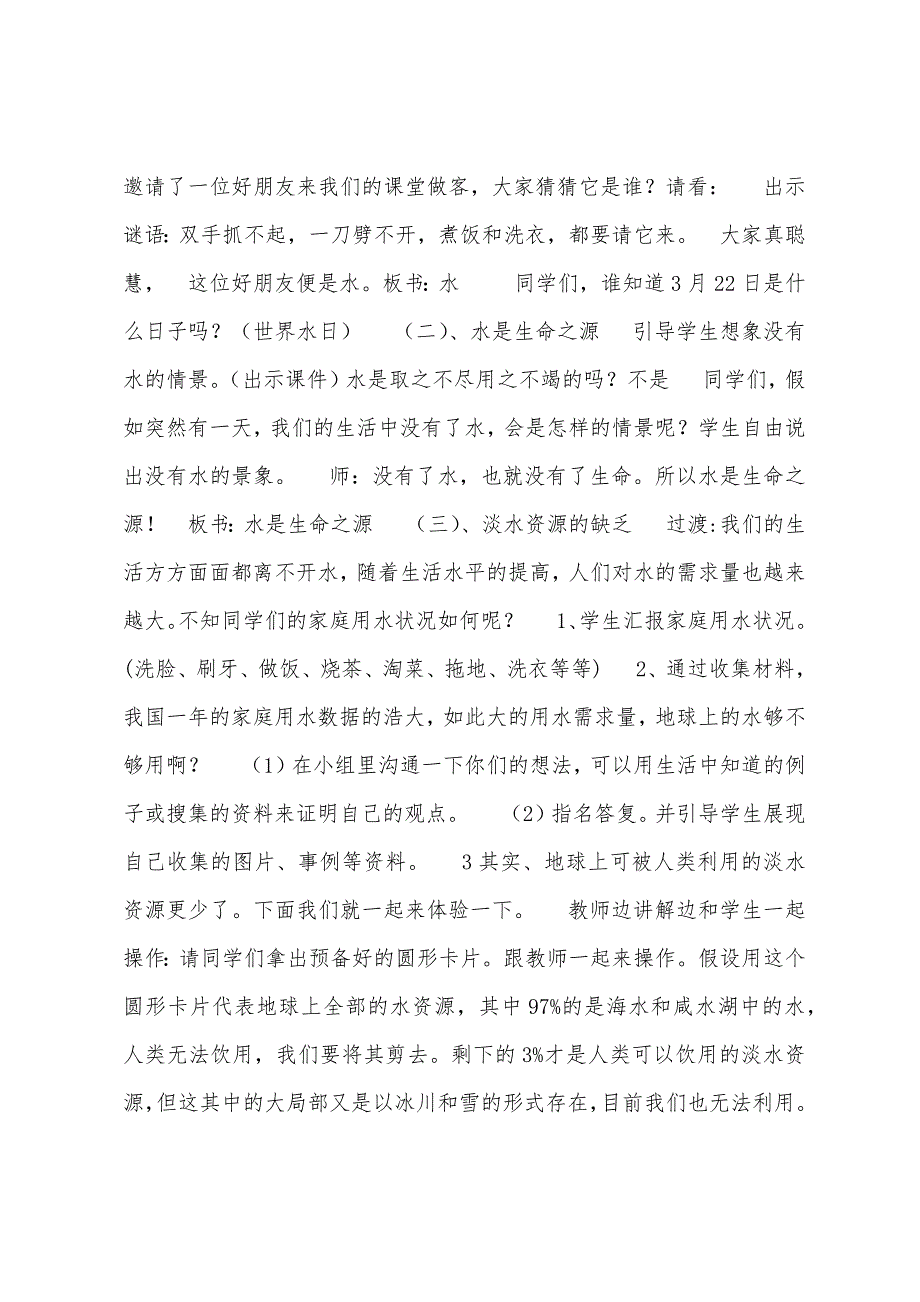 邀请了一位好朋友来我们的课堂做客，大家猜猜它是谁？请看：　　出示
谜语：双手抓不起，一刀劈不开，煮饭和洗衣，都要请它来。　大家真聪
慧，　这位好朋友便是水。板书：水　　　同学们，谁知道 3 月 22 日是什
么日子吗？（世界水日）　　（二）、水是生命之源　　引导学生想象没有
水的情景。（出示课件）水是取之不尽用之不竭的吗？不是　　同学们，假
如突然有一天，我们的生活中没有了水，会是怎样的情景呢？学生自由说
出没有水的景象。　　师：没有了水，也就没有了生命。所以水是生命之
源！　板书：水是生命之源　　（三）、淡水资源的缺乏　　过渡：我们的生
活方方面面都离不开水，随着生活水平的提高，人们对水的需求量也越来
越大。不知同学们的家庭用水状况如何呢？　　1、学生汇报家庭用水状况。
(洗脸、刷牙、做饭、烧茶、淘菜、拖地、洗衣等等)　　2、通过收集材料，
我国一年的家庭用水数据的浩大，如此大的用水需求量，地球上的水够不
够用啊？　　（1）在小组里沟通一下你们的想法，可以用生活中知道的例
子或搜集的资料来证明自己的观点。　　（2）指名答复。并引导学生展现
自己收集的图片、事例等资料。　　3 其实、地球上可被人类利用的淡水
资源更少了。下面我们就一起来体验一下。　　教师边讲解边和学生一起
操作：请同学们拿出预备好的圆形卡片。跟教师一起来操作。假设用这个
圆形卡片代表地球上全部的水资源，其中 97%的是海水和咸水湖中的水，
人类无法饮用，我们要将其剪去。剩下的 3%才是人类可以饮用的淡水资
源，但这其中的大局部又是以冰川和雪的形式存在，目前我们也无法利用。